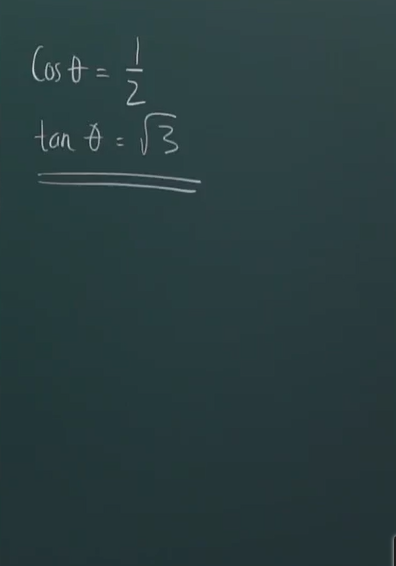 Cos θ = 1/2
tan θ = √3